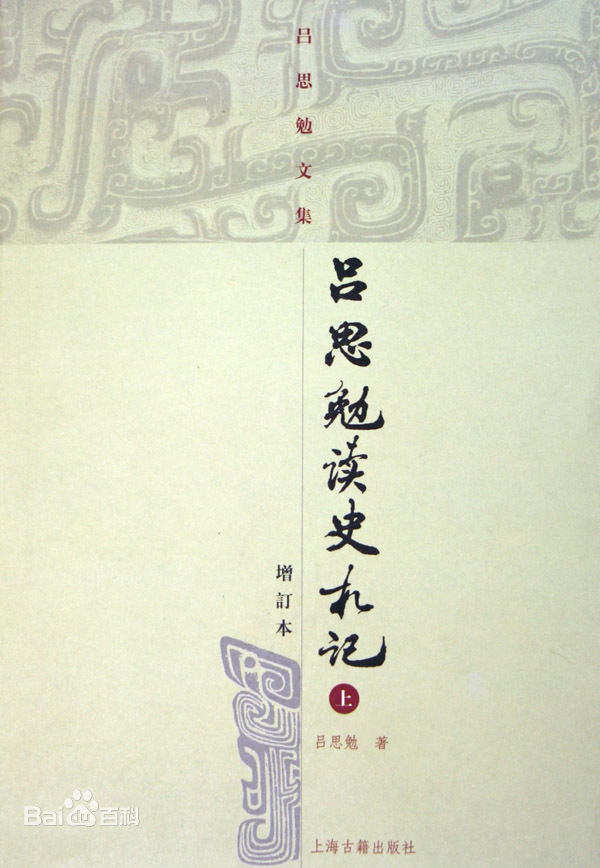 吕思勉文集
吕思勉读史札记
上
增訂本
吕思勉 著
上海古籍出版社
Baidu百科